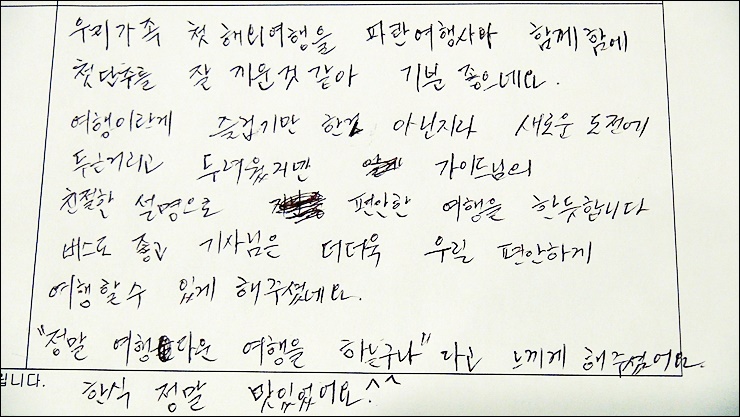 우리가족 첫 해외여행을 파란여행사와 함께 함에
첫단추를 잘 끼운것 같아 기분 좋으네요.
여행이란게 즐겁기만 한건 아닌지라 새로운 도전에
두근거리고 두려웠지만 가이드님의
친절한 설명으로 편안한 여행을 한듯합니다
버스도 좋고 기사님은 더더욱 우릴 편안하게
여행할수 있게 해주셨네요.
"정말 여행다운 여행을 하는구나" 라고 느끼게 해주셨어요.
됩니다.
한식 정말 맛있었어요.^^